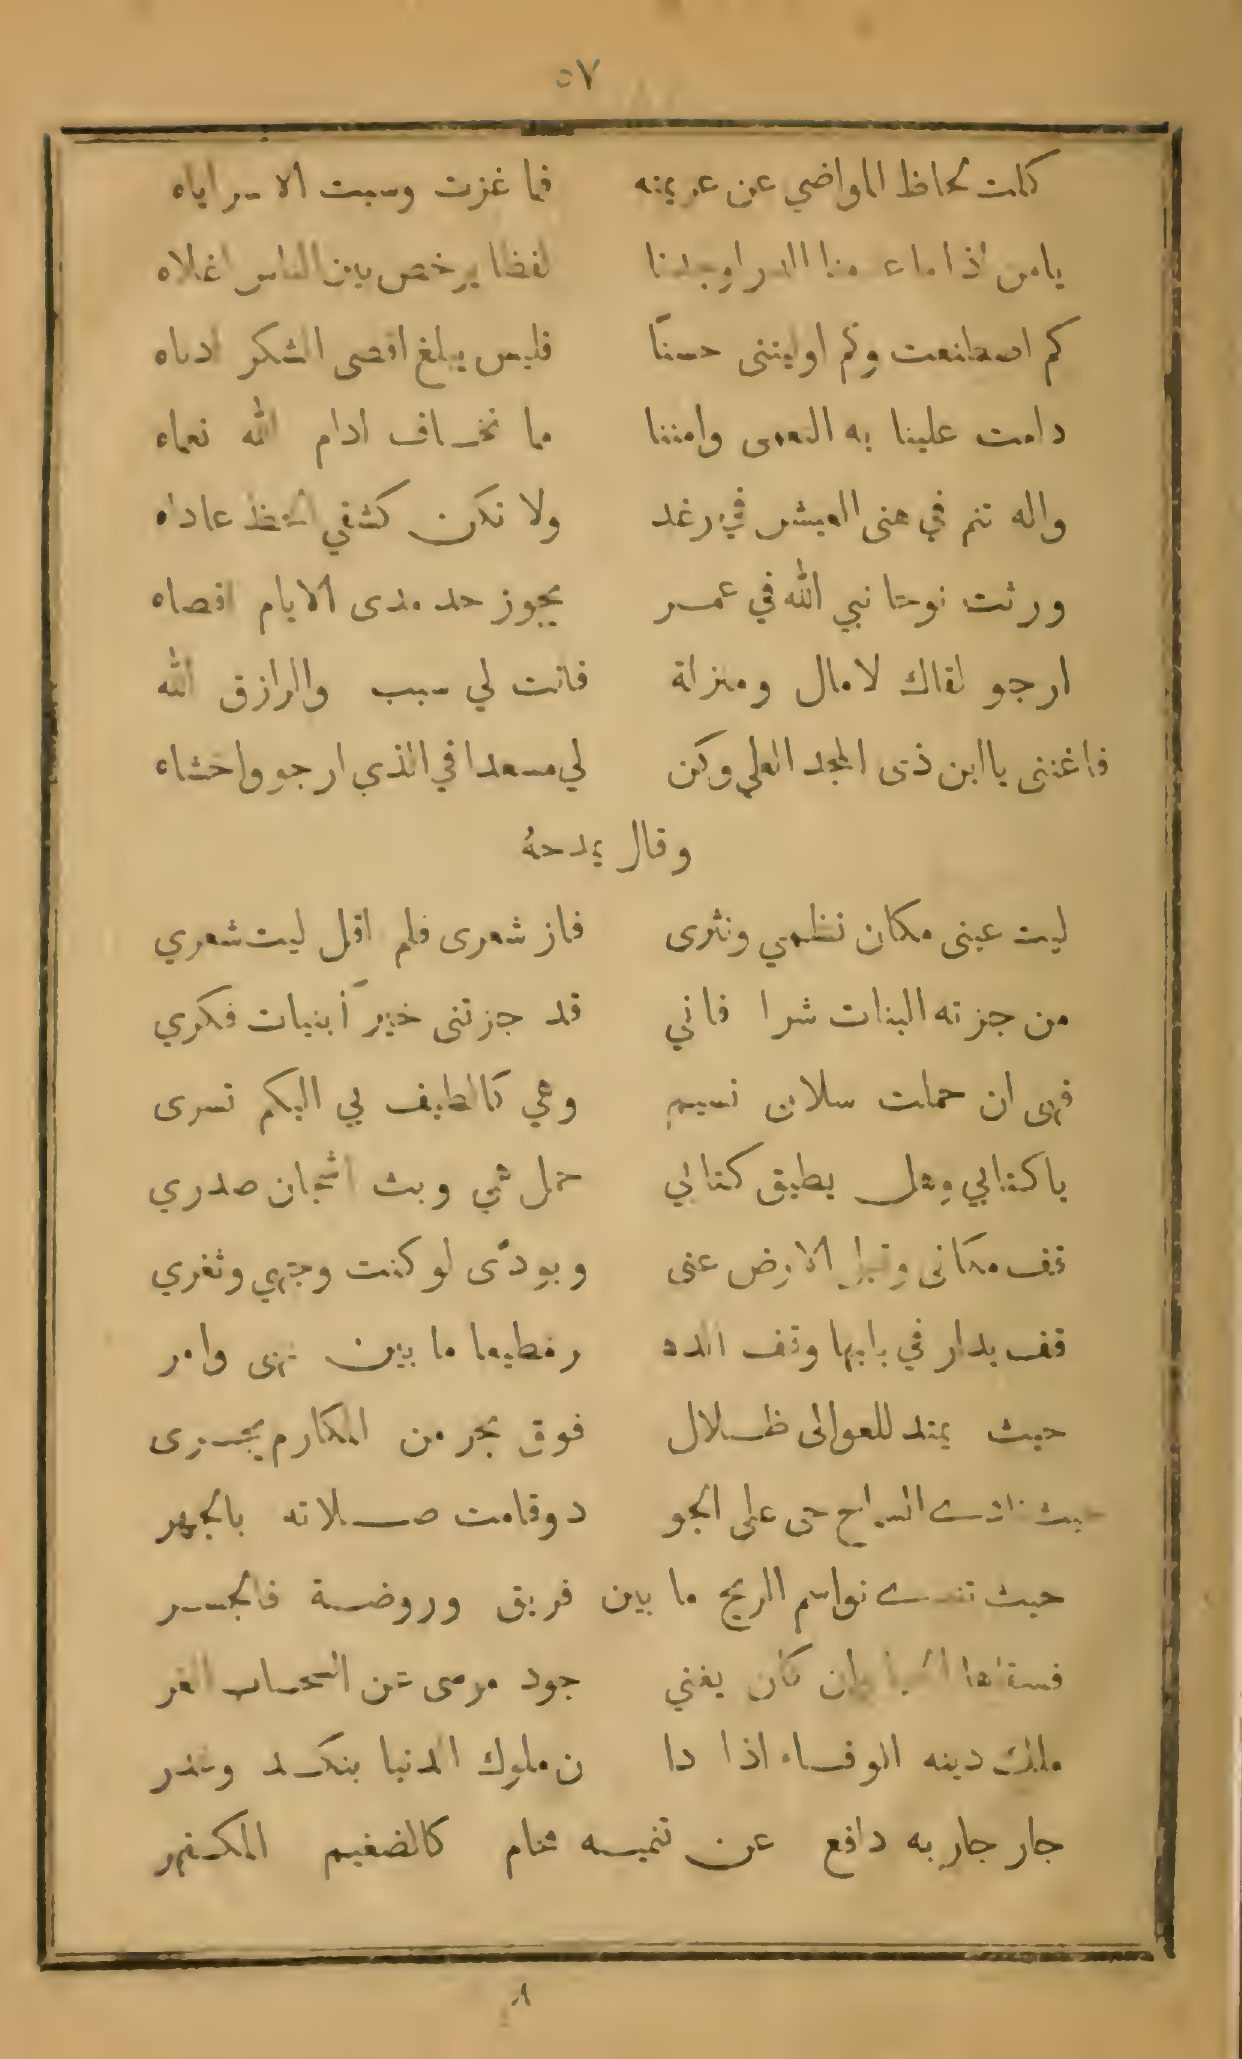 ٥٧
كلت لحاظ المواضي عن عزيمته فما غزت وسبت الا سراياه
يامن اذا ما الدر اوجدنا لفظا يرخص بين الناس اغلاه
كم اصطنعت وكم اوليتنى حسنًا فليس يبلغ اقصى الشكر ادناه
دامت علينا به النعمى وامننا مما نخاف ادام الله نعماه
واله تنم في هنى العيش في رغد ولا تكن كشفي الحظ عاداه
ورثت نوحا نبي الله في عمر يجوز حد مدى الايام اقصاه
ارجو لقاك لا مال ومنزلة فانت لي سبب والرازق الله
فاغننى يا ابن ذى المجد العلي وكن لي مسعدا في الذي ارجو واخشاه
وقال يمدحهُ
ليت عينى مكان نظمي ونثرى فاز شعرى فلم اقل ليت شعري
من جزته البنات شرا فاني قد جزتنى خيرًا بنيات فكري
فهى ان حملت سلامي نسيم وهي كالطيف بي اليكم تسرى
يا كتابي وهل يطيق كتابي حمل همي وبث اشجان صدري
قف مكانى وقبل الارض عنى وبودّى لو كنت وجهي وثغري
قف بدار في بابها وقف الده رمطيعا ما بين نهى وامر
حيث يمتد للعوالى ظلال فوق بحر من المكارم يجرى
حيث نادى السماح حى على الجو د وقامت صلاته بالجهر
حيث تندى نواسم الريح ما بين فريق وروضة فالجسر
فسقاها الحيا وان كان يغني جود موسى عن السحاب الغر
ملك دينه الوفاء اذا دا ن ملوك الدنيا بنكد وغدر
جار جار به دافع عن تنميسه محام كالضغيم المكفهر
٨